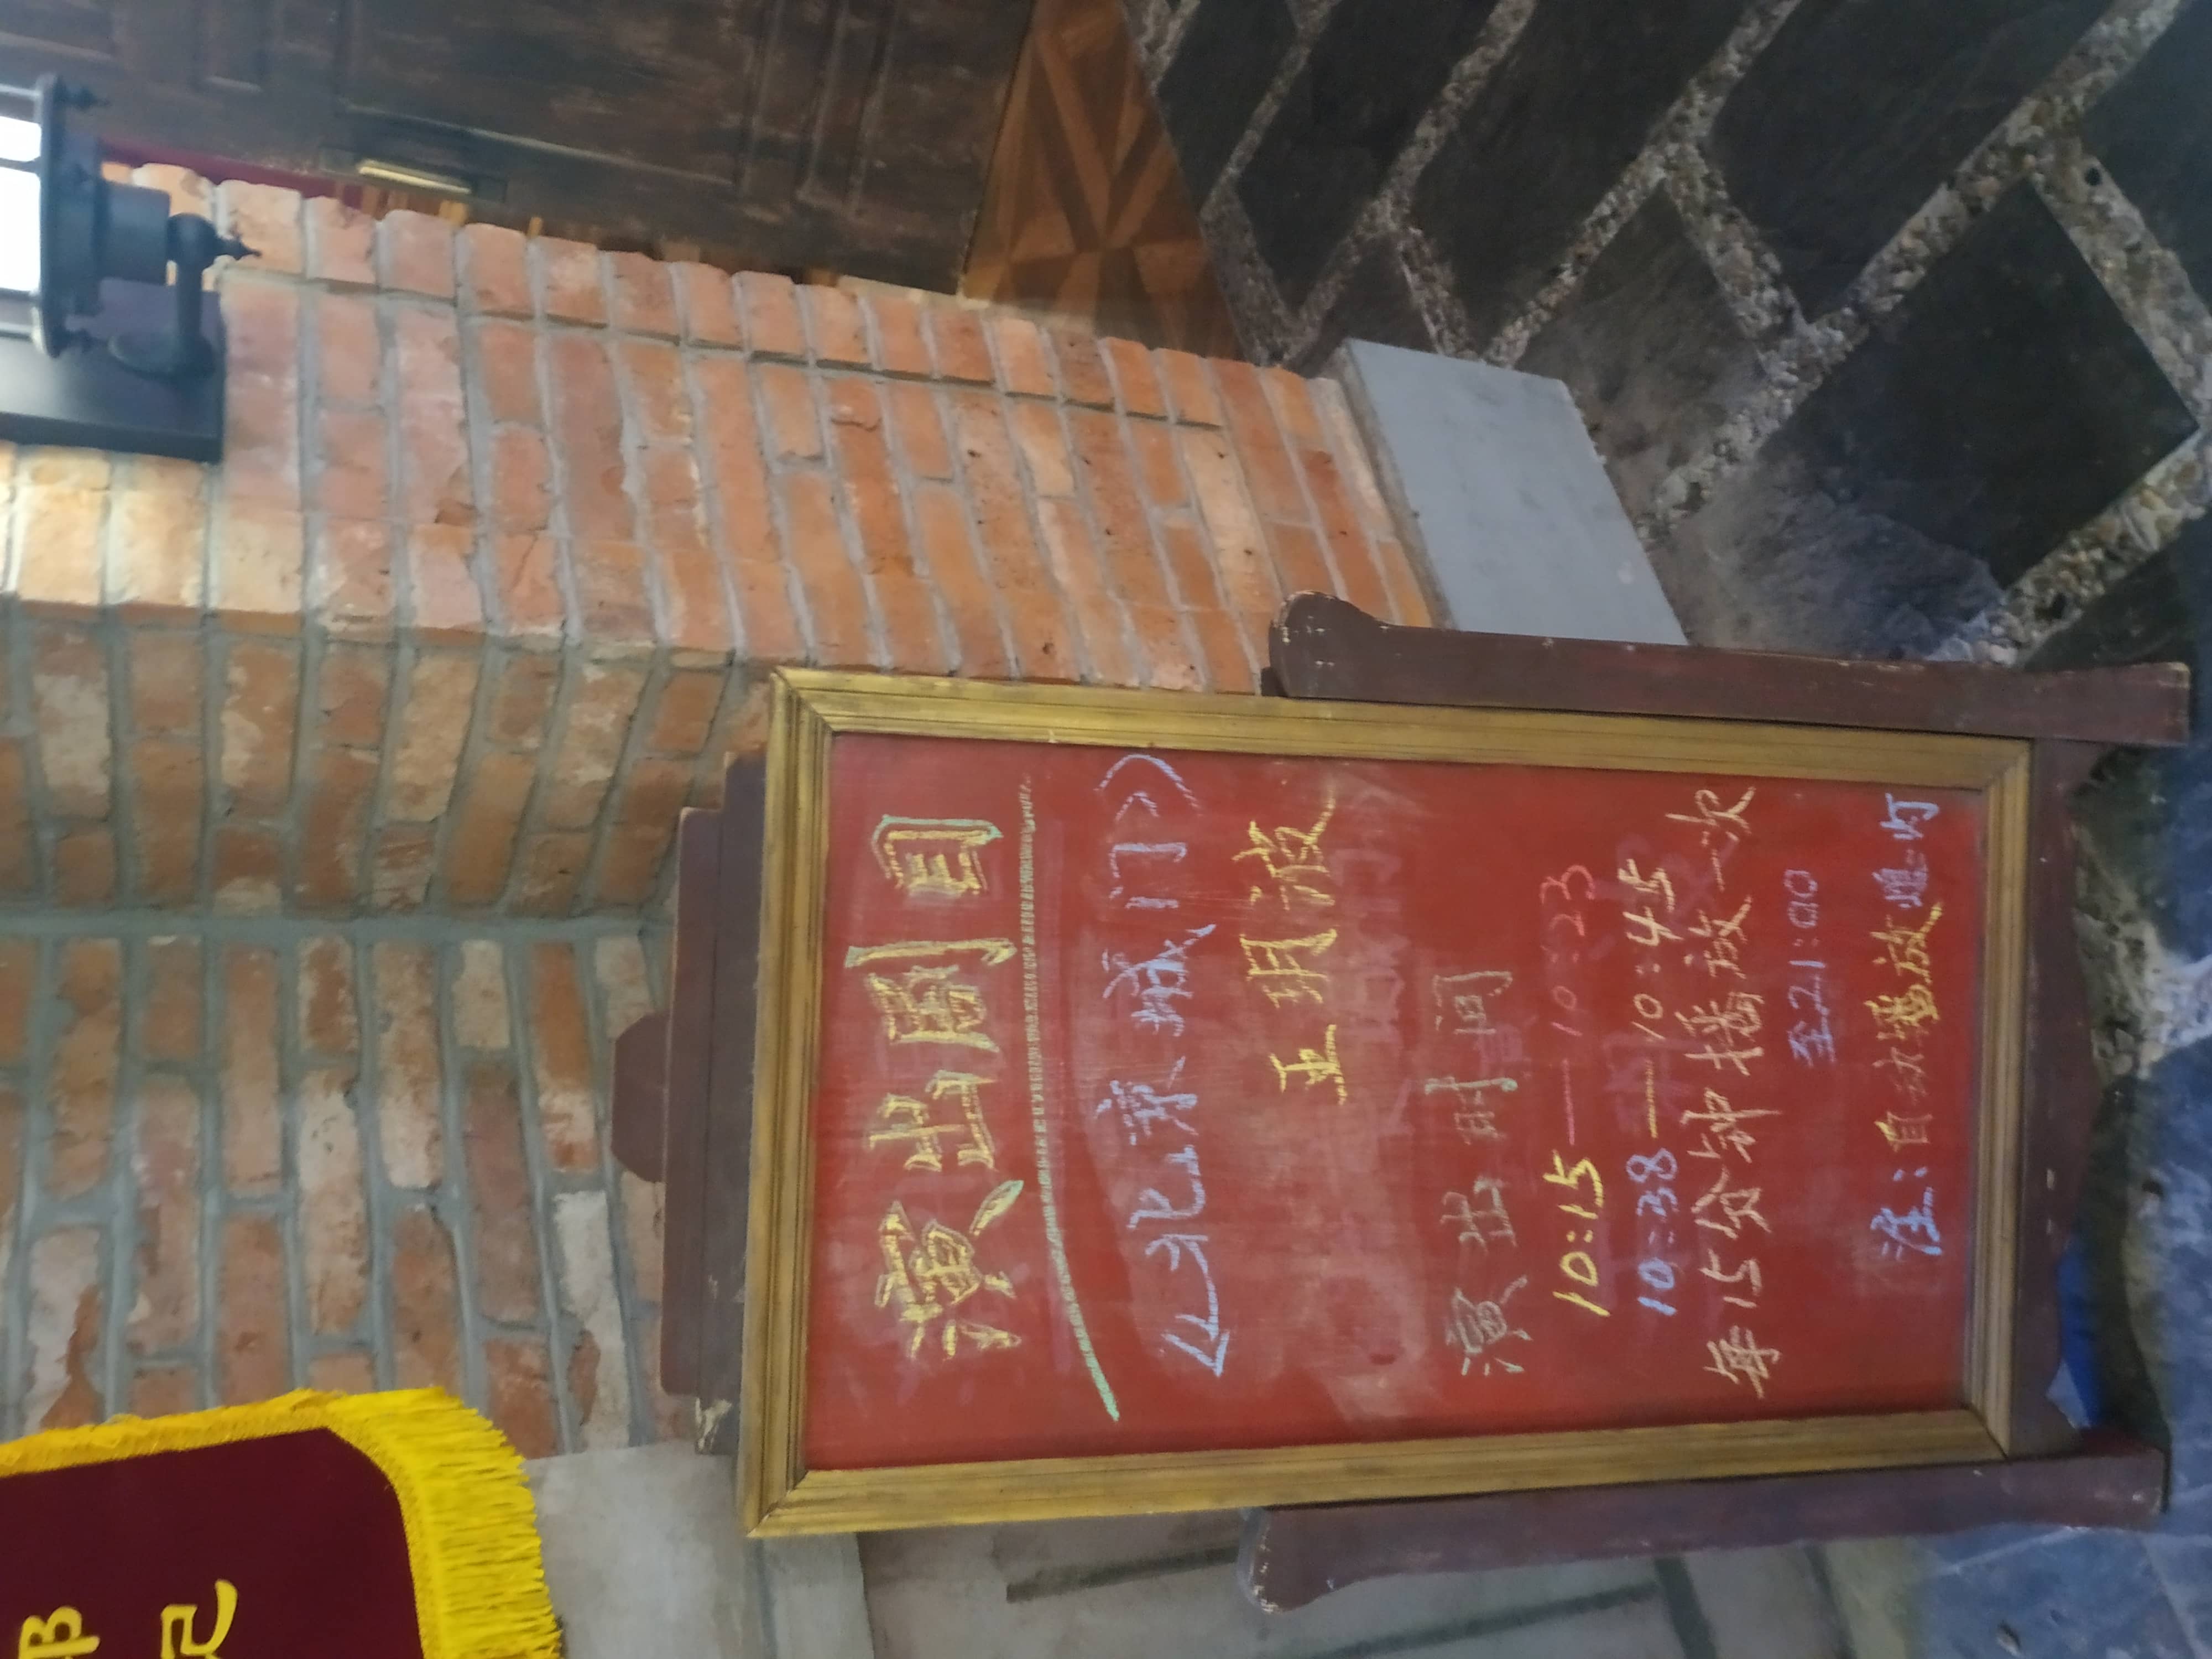 邦
记
演出剧目
《北京城门》
王玥波
演出时间
10:15——10:23
10:38——10:45
每15分钟播放一次
至21:00
注:自动播放熄灯